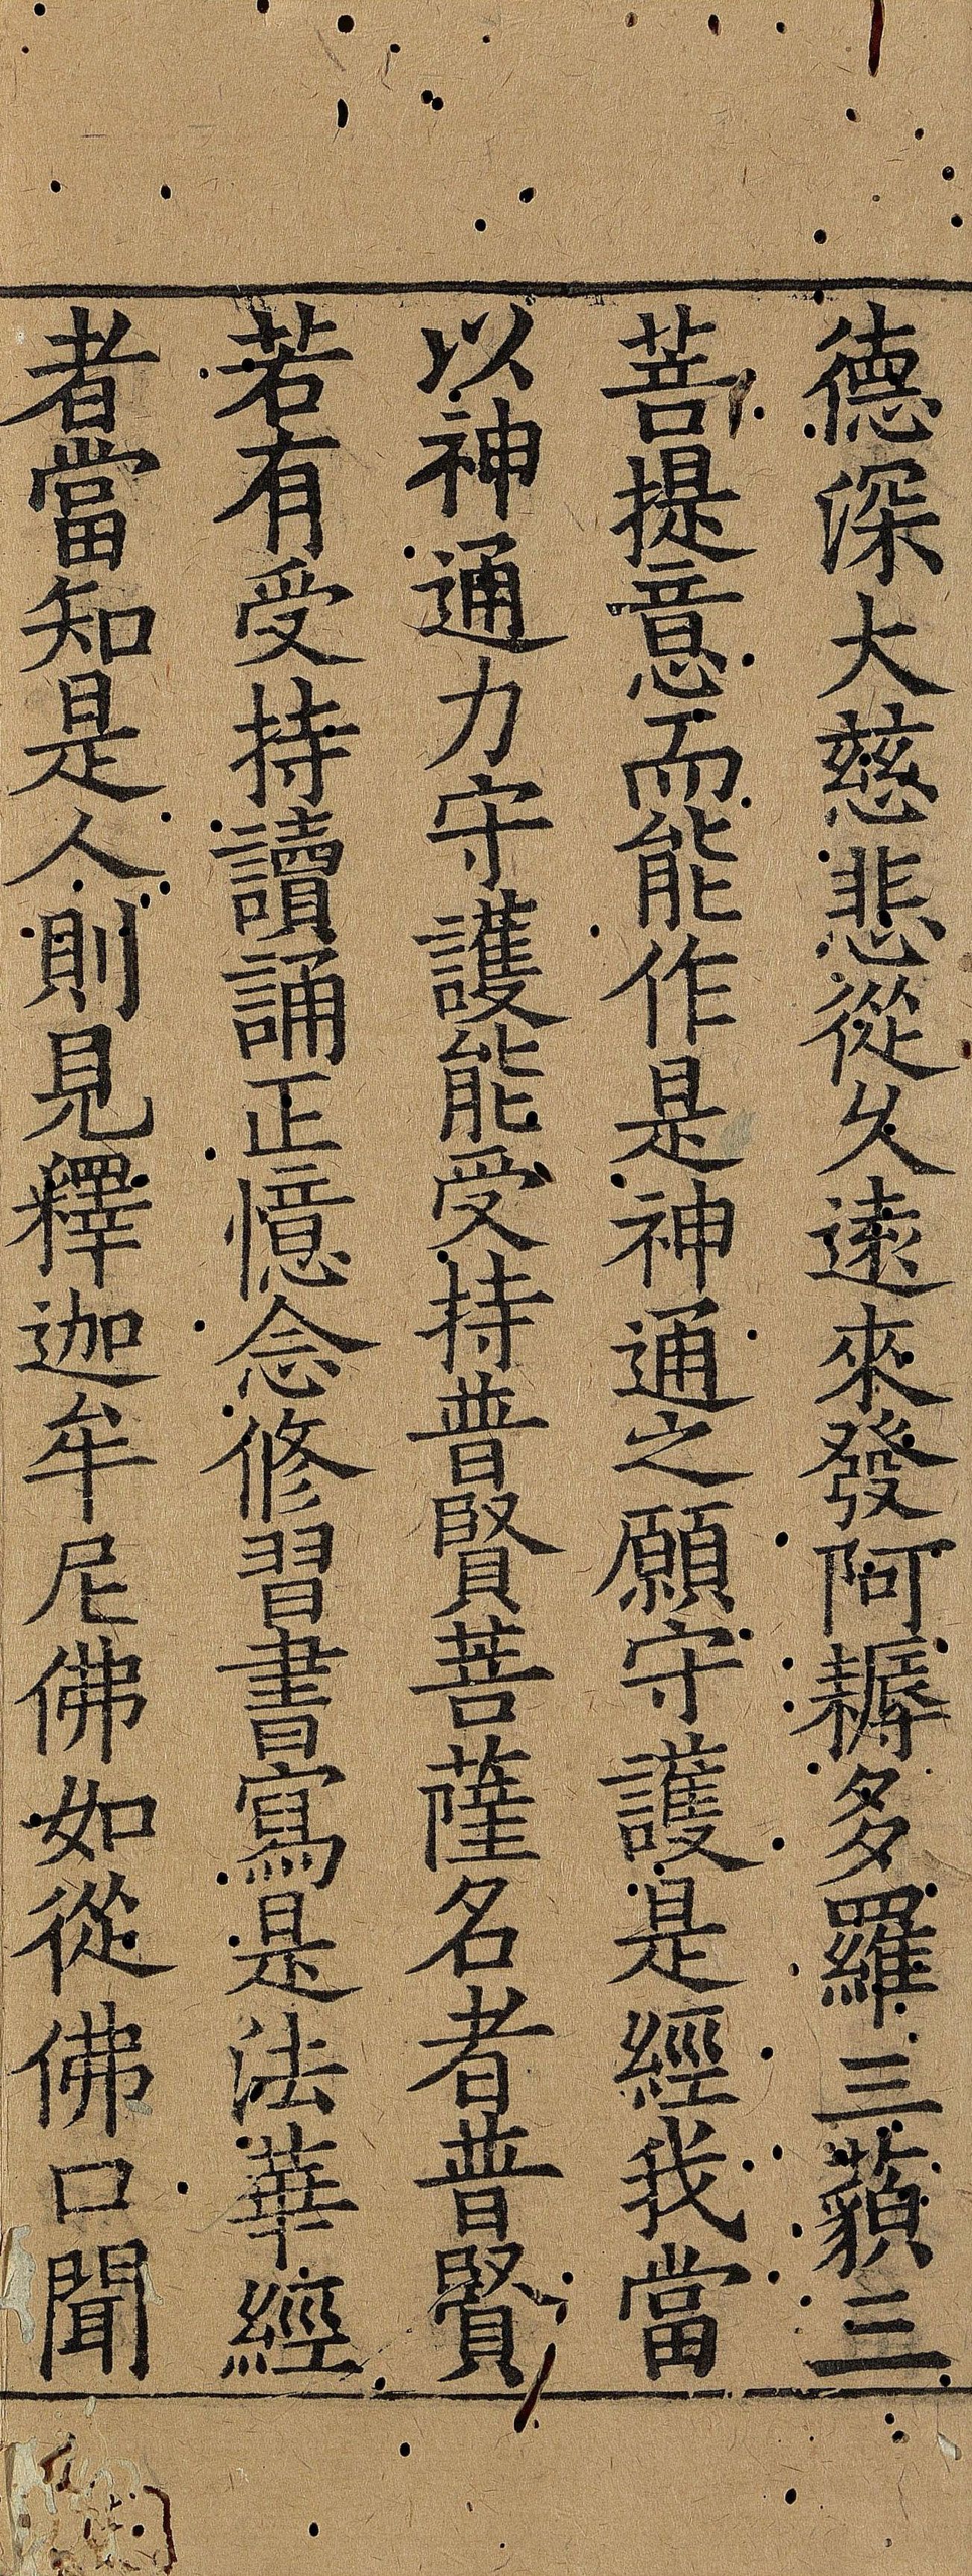 德深大慈悲從久遠來發阿耨多羅三藐三
菩提意而能作是神通之願守護是經我當
以神通力守護能受持普賢菩薩名者普賢
若有受持讀誦正憶念修習書寫是法華經
者當知是人則見釋迦牟尼佛如從佛口聞